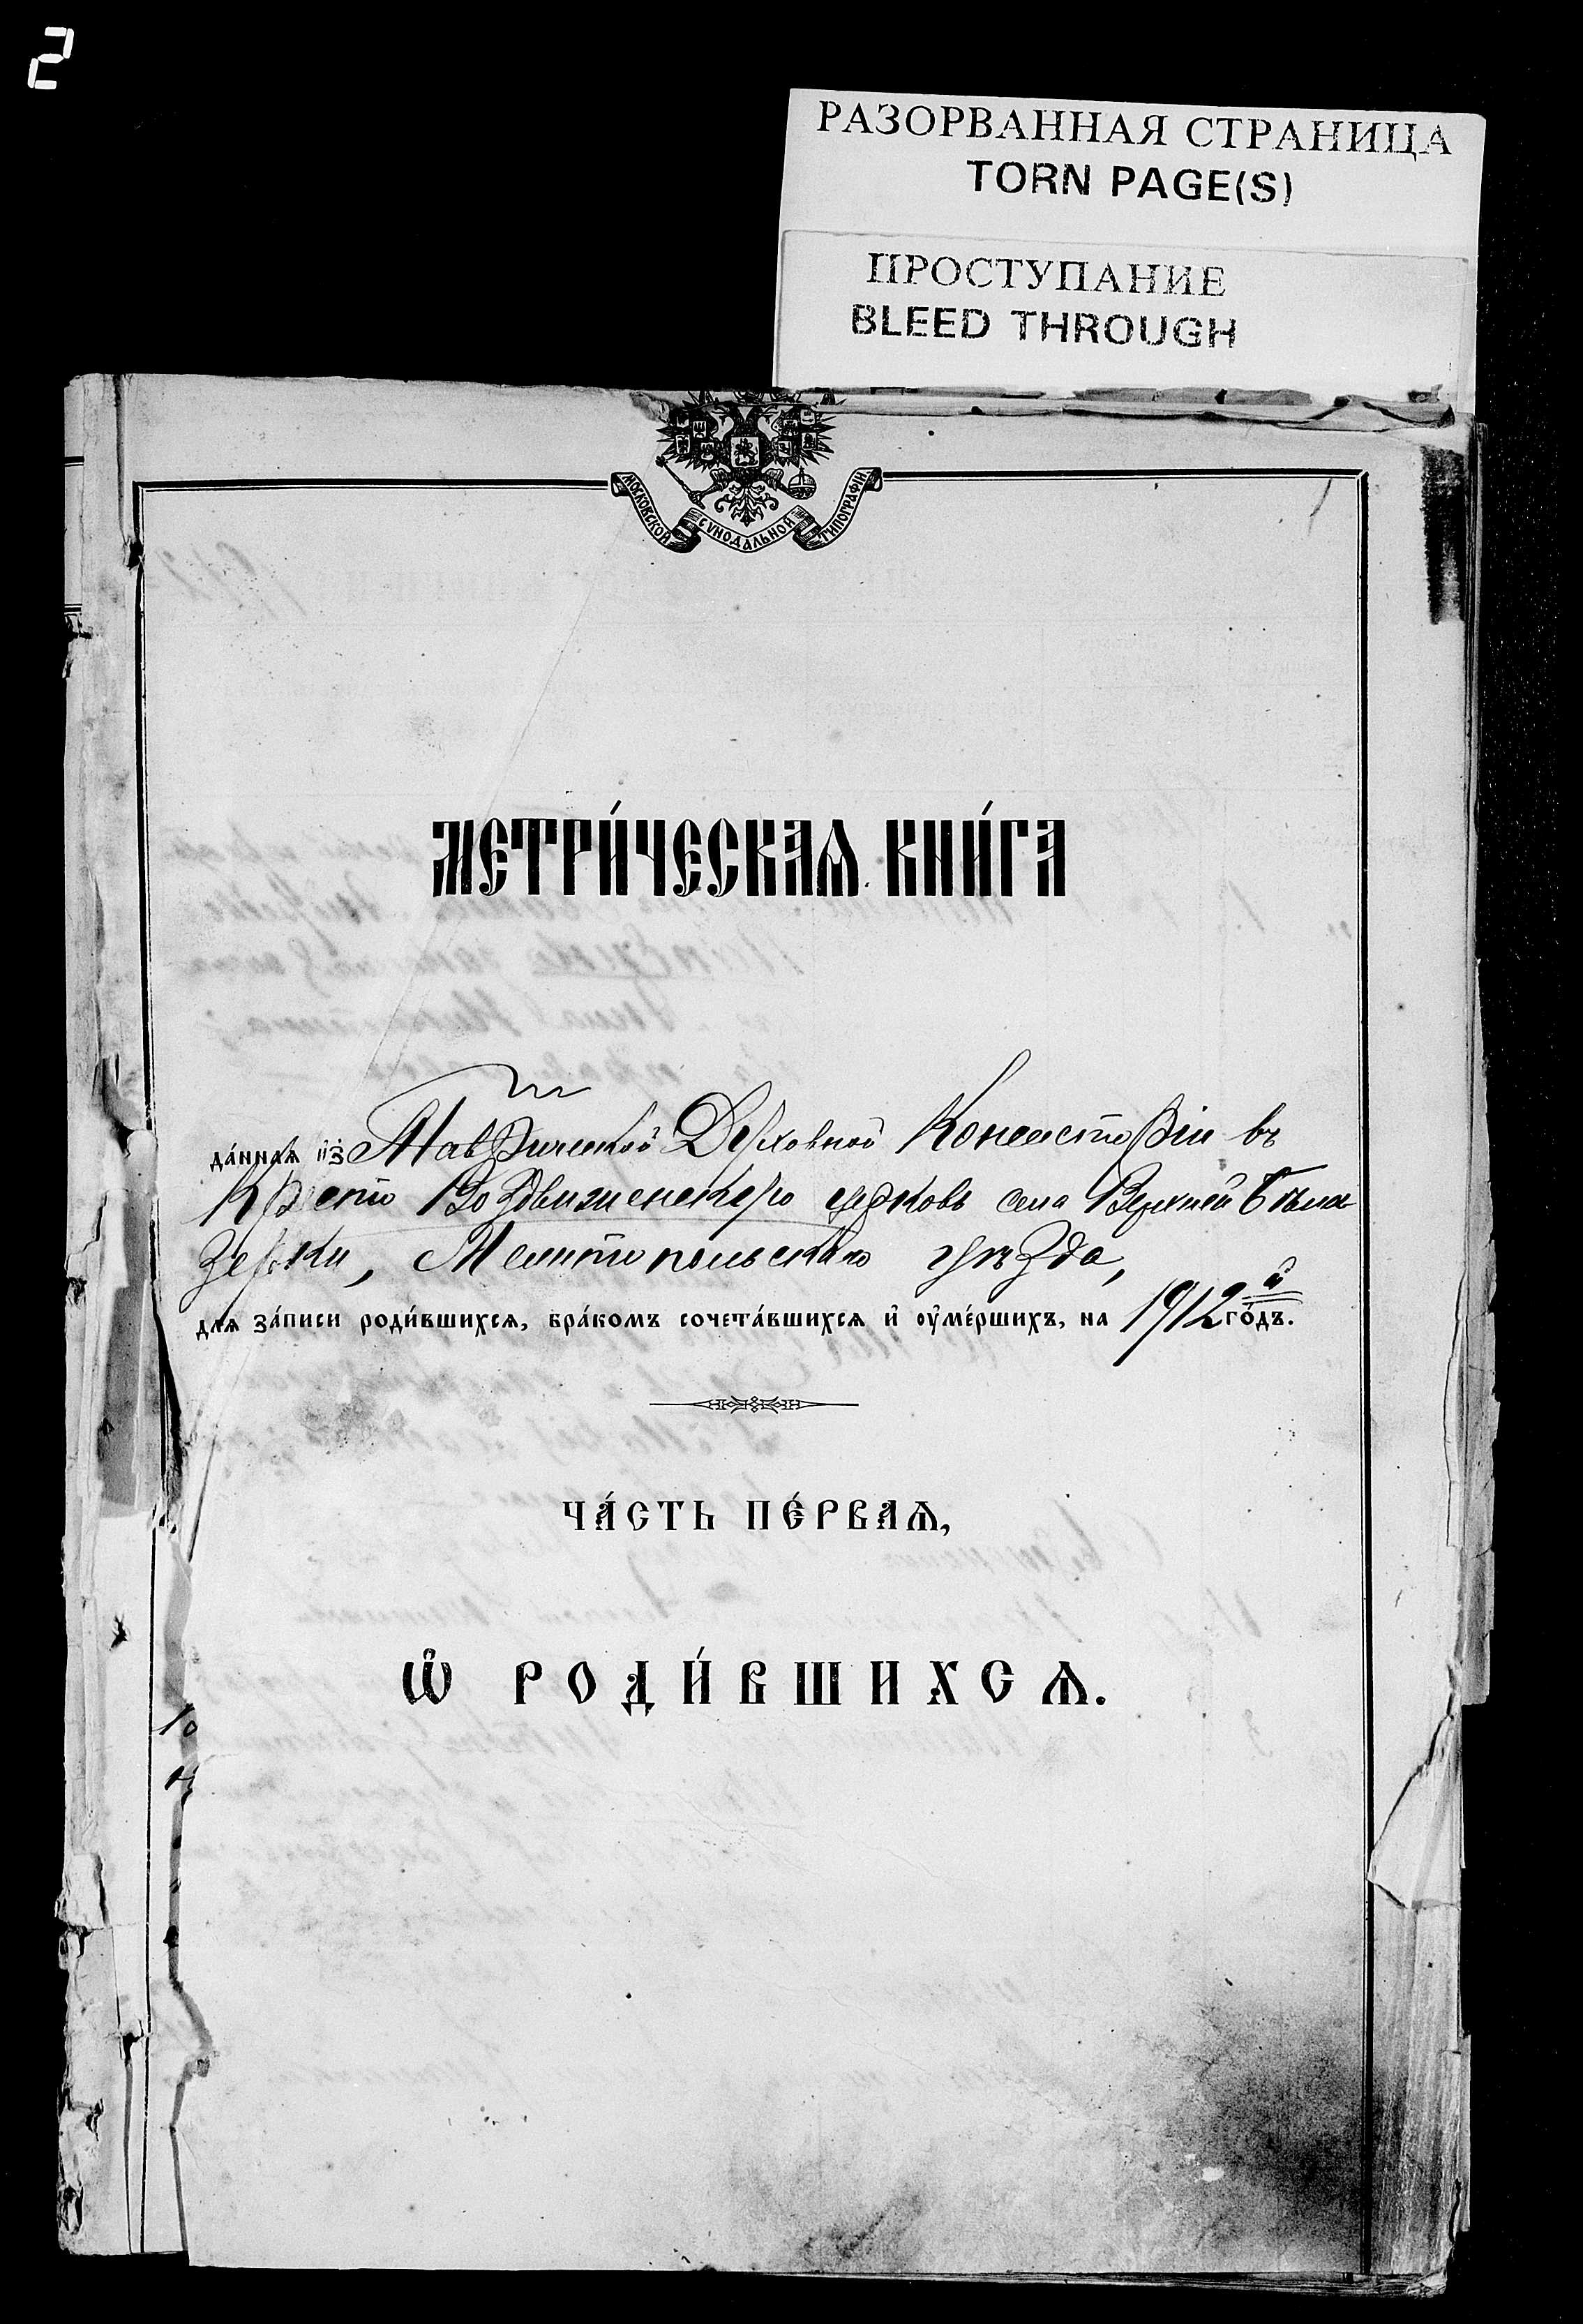 2
РАЗОРВАННАЯ СТРАНИЦА
TORN PAGE(S)
ПРОСТУПАНИЕ
BLEED THROUGH
МОСКОВСКОЙ СУНОДАЛЬНОЙ ТИПОГРАФІИ
МЕТРИ́ЧЕСКАѦ КНИ́ГА
да́ннаѧ из̾ Таврической Духовной Консисторіи въ
Кресто Воздвиженскую церковь села Верхней Бѣло
зерки, Мелитопольскаго уѣзда,
длѧ за́писи роди́вшихсѧ, бра́комъ сочета́вшихсѧ и҆ ᲂу҆ме́ршихъ, на 1912й го́дъ.
ЧА́СТЬ ПЕ́РВАѦ,
Ѽ РОДИ́ВШИХСѦ.